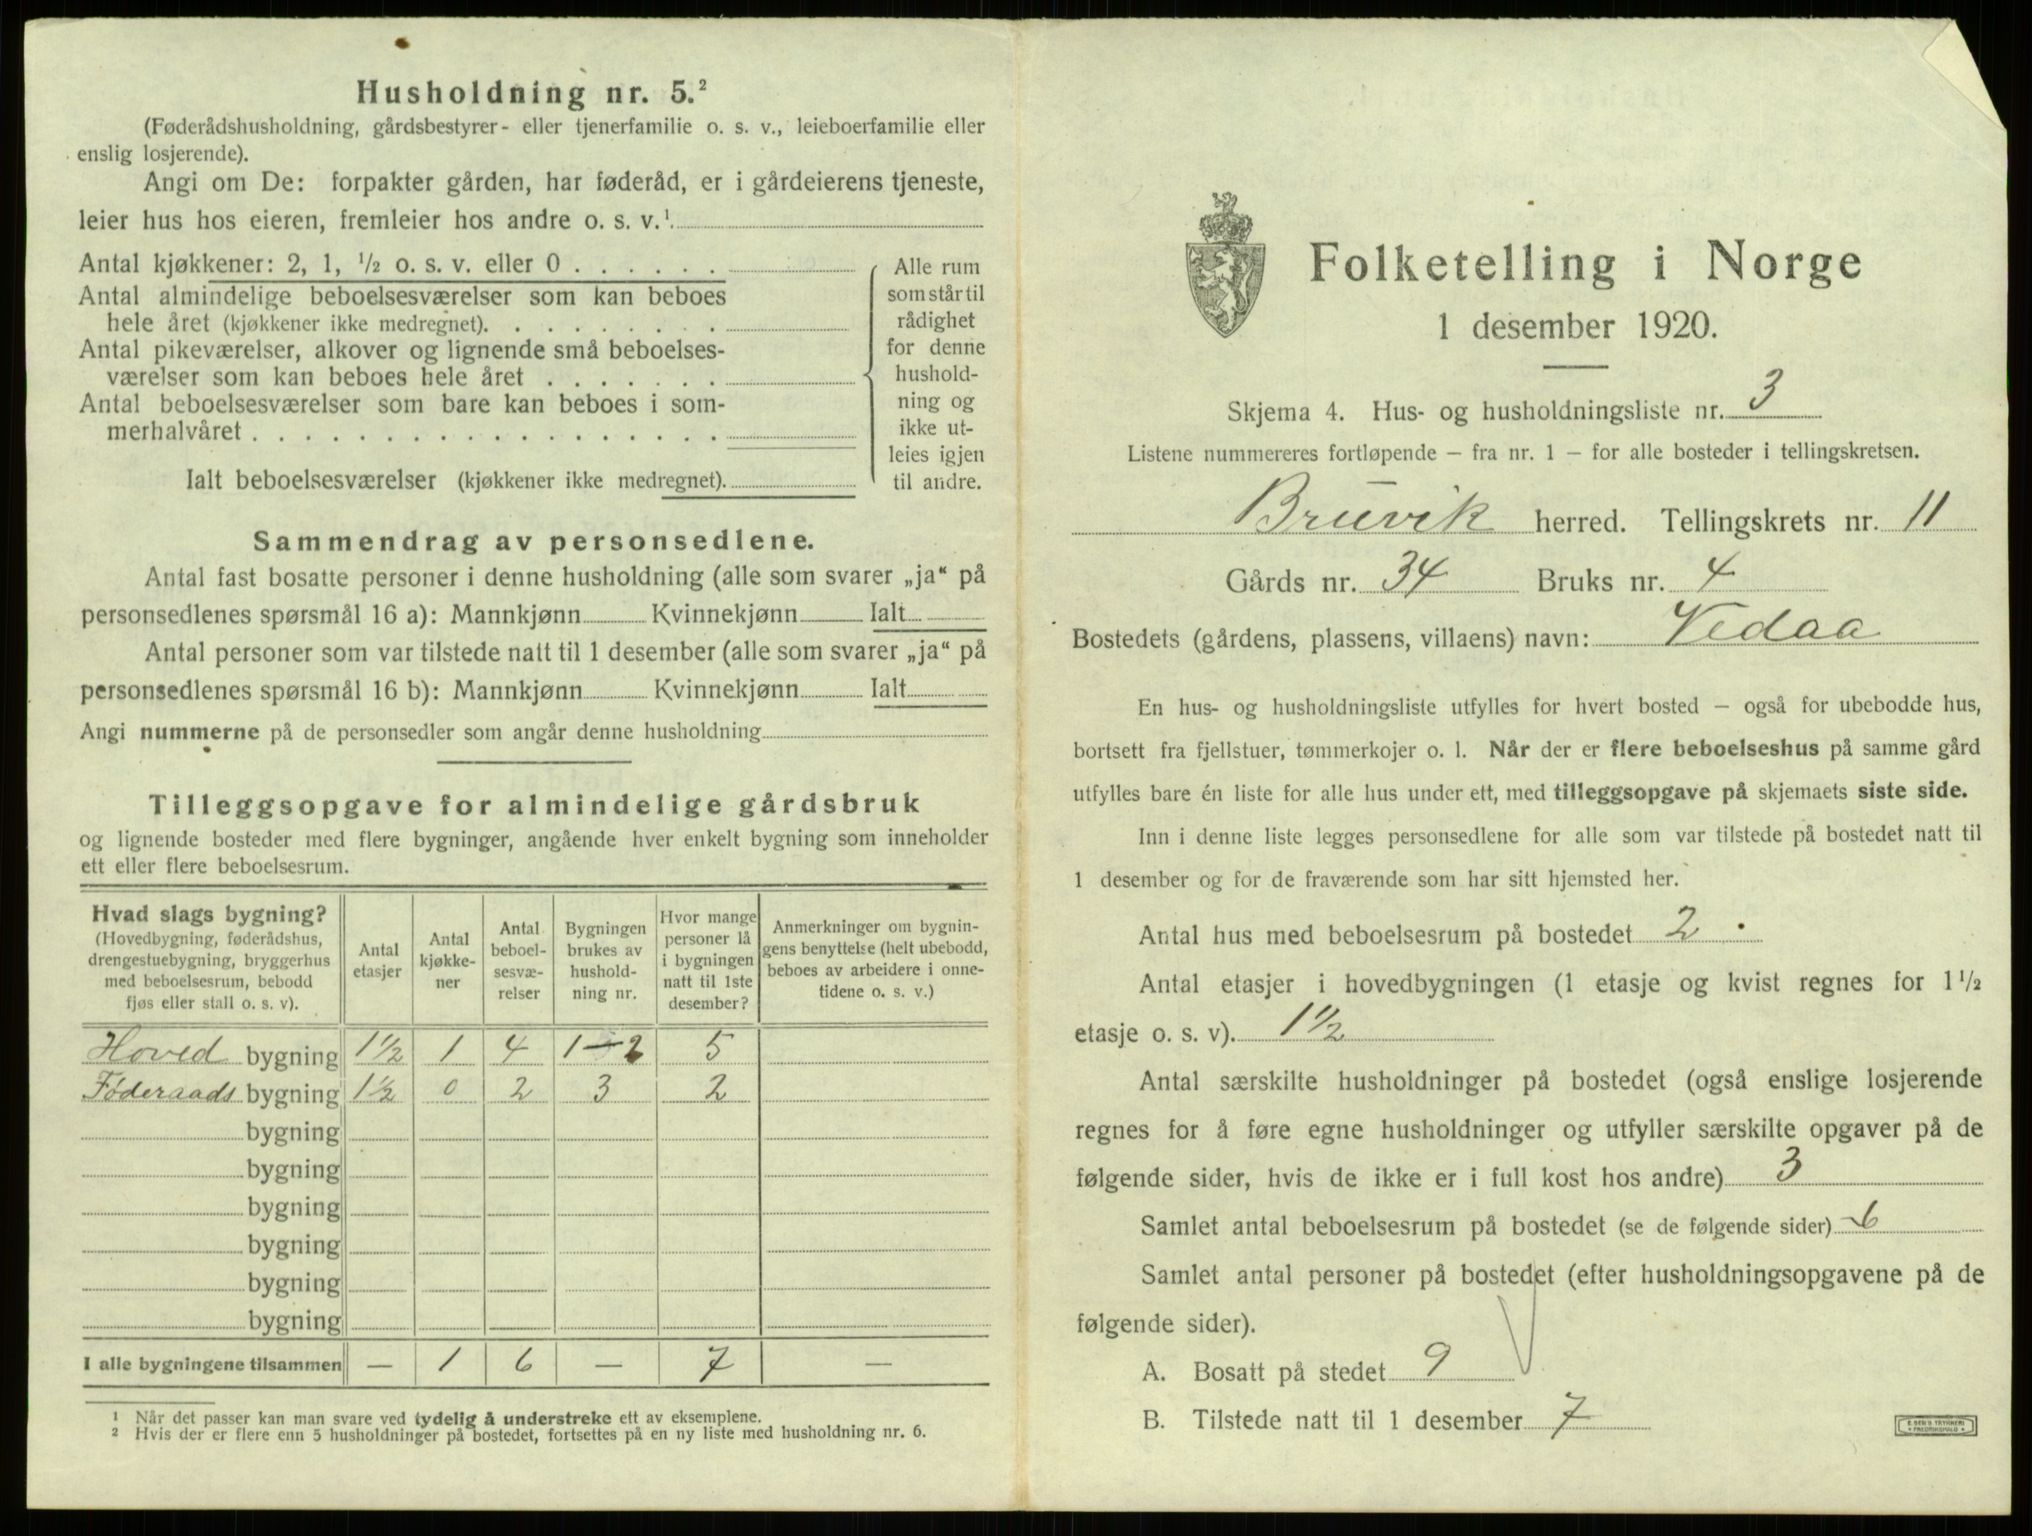 Husholdning nr. 5.²
(Føderådshusholdning, gårdsbestyrer- eller tjenerfamilie o. s. v., leieboerfamilie eller
enslig losjerende).
Angi om De: forpakter gården, har føderåd, er i gårdeierens tjeneste,
leier hus hos eieren, fremleier hos andre o. s. v.¹
Antal kjøkkener: 2, 1, ½ o. s. v. eller 0 . . . . . .
Antal almindelige beboelsesværelser som kan beboes
hele året (kjøkkener ikke medregnet). . . . . . . . .
Antal pikeværelser, alkover og lignende små beboelses-
værelser som kan beboes hele året . . . . . . .
Antal beboelsesværelser som bare kan beboes i som-
merhalvåret . . . . . . . . . . . . . . . . . .
Ialt beboelsesværelser (kjøkkener ikke medregnet).
Alle rum
som står til
rådighet
for denne
hushold-
ning og
ikke ut-
leies igjen
til andre.
Sammendrag av personsedlene.
Antal fast bosatte personer i denne husholdning (alle som svarer „ja“ på
personsedlenes spørsmål 16 a): Mannkjønn Kvinnekjønn Ialt
Antal personer som var tilstede natt til 1 desember (alle som svarer „ja“ på
personsedlenes spørsmål 16 b): Mannkjønn Kvinnekjønn Ialt
Angi nummerne på de personsedler som angår denne husholdning
Tilleggsopgave for almindelige gårdsbruk
og lignende bosteder med flere bygninger, angående hver enkelt bygning som inneholder
ett eller flere beboelsesrum.
Hvad slags bygning?
(Hovedbygning, føderådshus,
drengestuebygning, bryggerhus
med beboelsesrum, bebodd
fjøs eller stall o. s. v).
Antal
etasjer
Antal
kjøkke-
ner
Antal
beboel-
sesvæ-
relser
Bygningen
brukes av
hushold-
ning nr.
Hvor mange
personer lå
i bygningen
natt til 1ste
desember?
Anmerkninger om bygnin-
gens benyttelse (helt ubebodd,
beboes av arbeidere i onne-
tidene o. s. v.)
Hoved bygning 1½ 1 4 1-2 5
Føderaads bygning 1½ 0 2 3 2
bygning
bygning
bygning
bygning
bygning
bygning
I alle bygningene tilsammen — 1 6 — 7 —
¹ Når det passer kan man svare ved tydelig å understreke ett av eksemplene.
² Hvis der er flere enn 5 husholdninger på bostedet, fortsettes på en ny liste med husholdning nr. 6.
Folketelling i Norge
1 desember 1920.
Skjema 4. Hus- og husholdningsliste nr. 3
Listene nummereres fortløpende – fra nr. 1 – for alle bosteder i tellingskretsen.
Bruvik herred. Tellingskrets nr. 11
Gårds nr. 34 Bruks nr. 4
Bostedets (gårdens, plassens, villaens) navn: Vedaa
En hus- og husholdningsliste utfylles for hvert bosted – også for ubebodde hus,
bortsett fra fjellstuer, tømmerkojer o. l. Når der er flere beboelseshus på samme gård
utfylles bare én liste for alle hus under ett, med tilleggsopgave på skjemaets siste side.
Inn i denne liste legges personsedlene for alle som var tilstede på bostedet natt til
1 desember og for de fraværende som har sitt hjemsted her.
Antal hus med beboelsesrum på bostedet 2
Antal etasjer i hovedbygningen (1 etasje og kvist regnes for 1½
etasje o. s. v). 1½
Antal særskilte husholdninger på bostedet (også enslige losjerende
regnes for å føre egne husholdninger og utfyller særskilte opgaver på de
følgende sider, hvis de ikke er i full kost hos andre) 3
Samlet antal beboelsesrum på bostedet (se de følgende sider) 6
Samlet antal personer på bostedet (efter husholdningsopgavene på de
følgende sider).
A. Bosatt på stedet 9
B. Tilstede natt til 1 desember 7